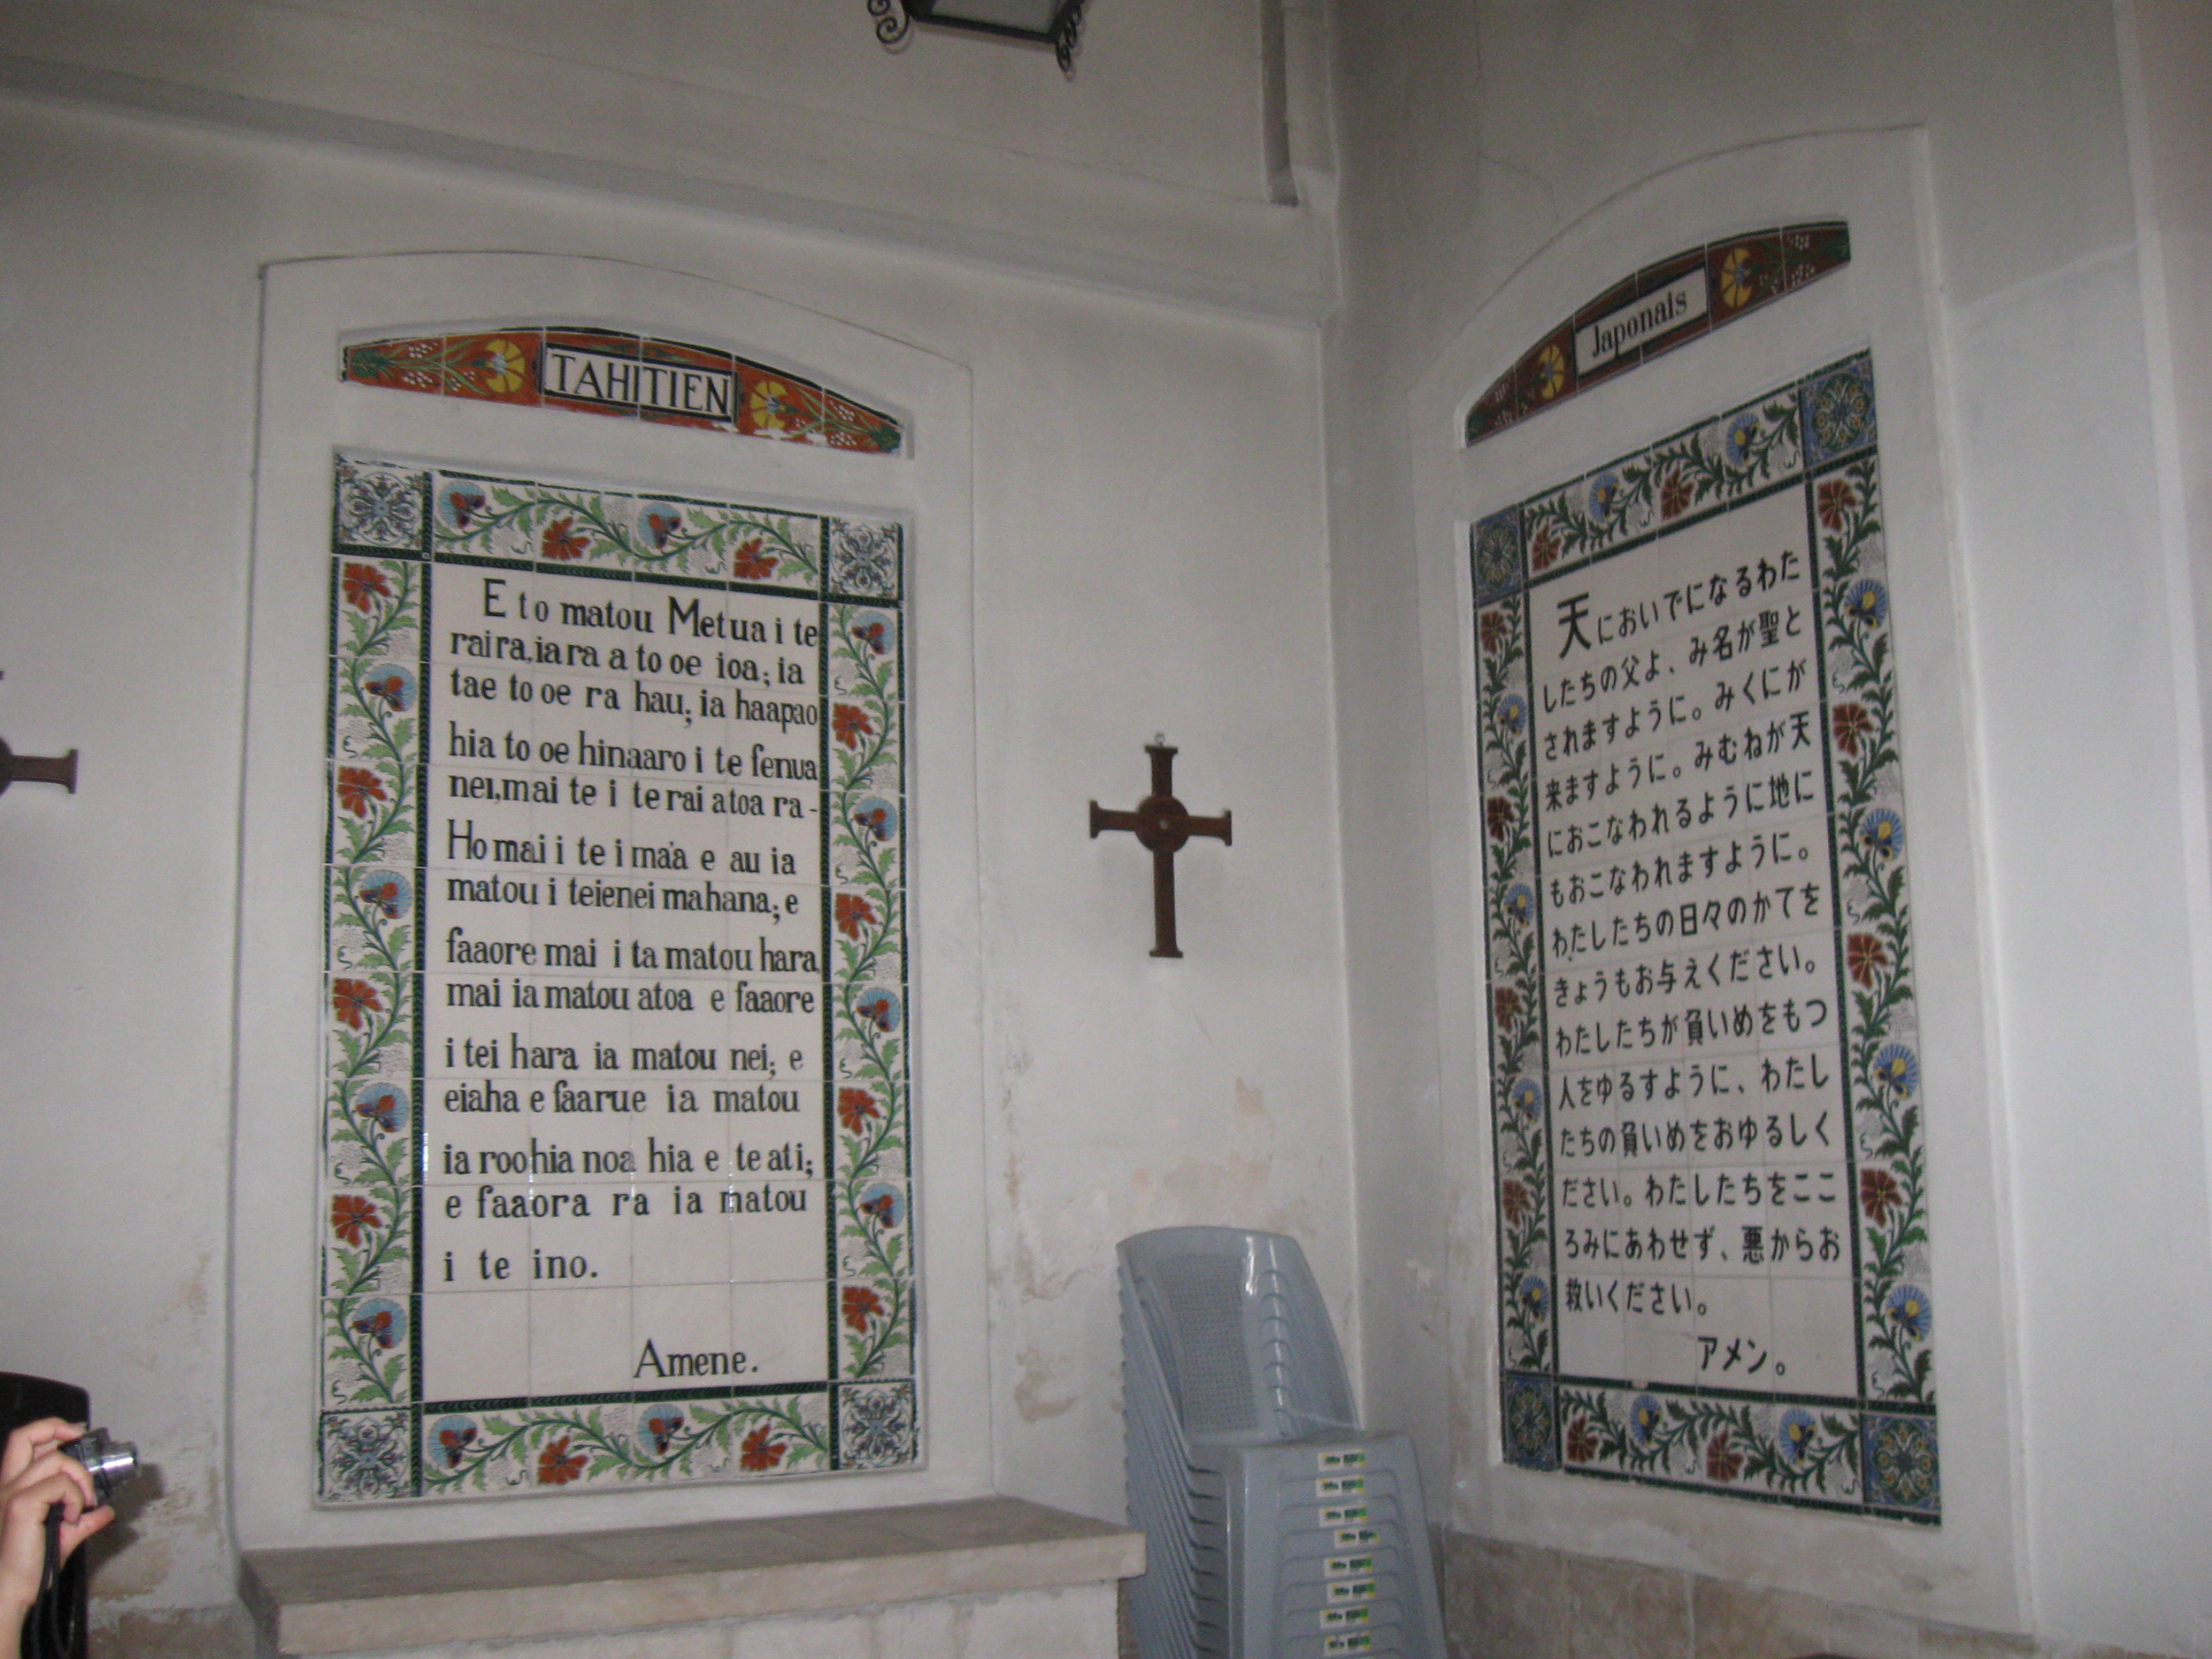 TAHITIEN
E to matou Metua i te
rai ra, ia ra a to oe ioa; ia
tae to oe ra hau; ia haapao
hia to oe hinaaro i te fenua
nei, mai te i te rai atoa ra-
Ho mai i te i ma'a e au ia
matou i teienei mahana; e
faaore mai i ta matou hara,
mai ia matou atoa e faaore
i tei hara ia matou nei; e
eiaha e faarue ia matou
ia roohia noa hia e te ati;
e faaora ra ia matou
i te ino.
Amene.
Japonais
天においでになるわた
したちの父よ、み名が聖と
されますように。みくにが
来ますように。みむねが天
におこなわれるように地に
もおこなわれますように。
わたしたちの日々のかてを
きょうもお与えください。
わたしたちが負いめをもつ
人をゆるすように、わたし
たちの負いめをおゆるしく
ださい。わたしたちをここ
ろみにあわせず、悪からお
救いください。
アメン。